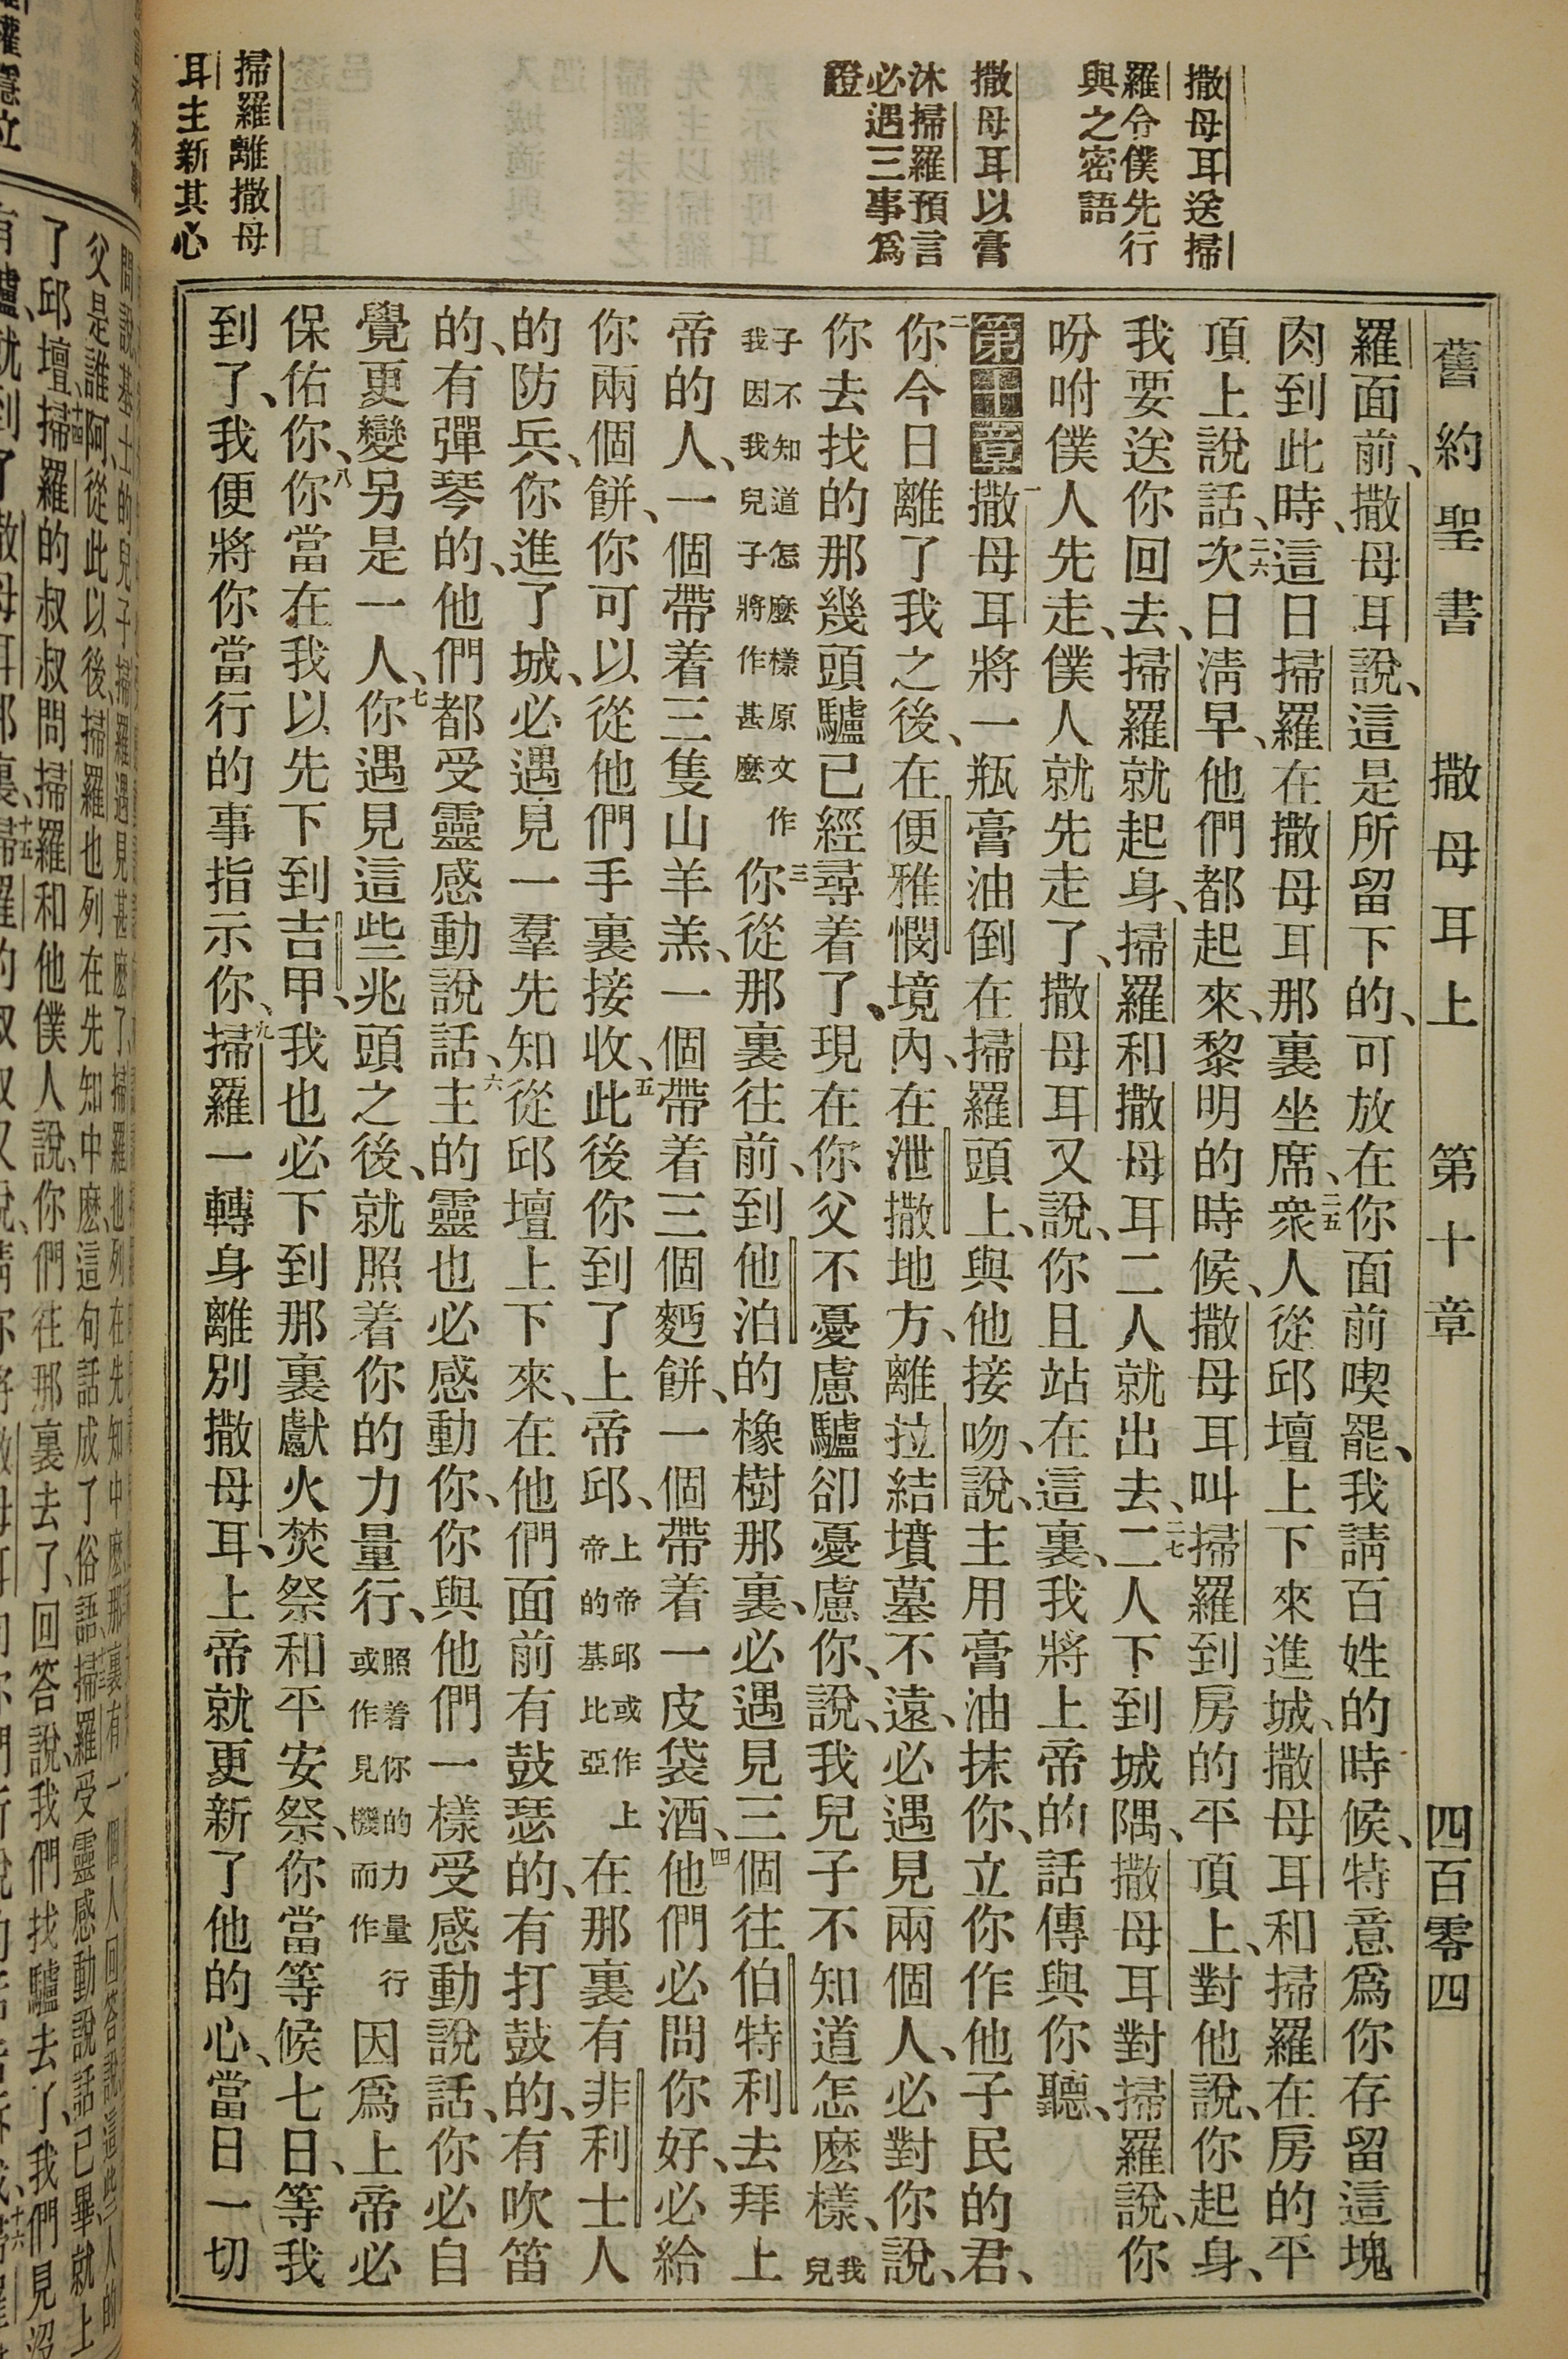 撒母耳送掃
羅令僕先行
與之密語
撒母耳以膏
沐掃羅預言
必遇三事爲
證
掃羅離撒母
耳主新其心
舊約聖書 撒母耳上 第十章 四百零四
羅面前、撒母耳說、這是所留下的、可放在你面前喫罷、我請百姓的時候、特意爲你存留這塊
肉到此時、這日掃羅在撒母耳那裏坐席、二五衆人從邱壇上下來進城、撒母耳和掃羅在房的平
頂上說話、二六次日淸早、他們都起來、黎明的時候、撒母耳叫掃羅到房的平頂上、對他說、你起身、
我要送你回去、掃羅就起身、掃羅和撒母耳二人就出去、二七二人下到城隅、撒母耳對掃羅說、你
吩咐僕人先走、僕人就先走了、撒母耳又說、你且站在這裏、我將上帝的話傳與你聽、
第十章 一撒母耳將一瓶膏油倒在掃羅頭上、與他接吻、說、主用膏油抹你、立你作他子民的君、
二你今日離了我之後、在便雅憫境內、在泄撒地方、離拉結墳墓不遠、必遇見兩個人、必對你說、
你去找的那幾頭驢已經尋着了、現在你父不憂慮驢卻憂慮你、說、我兒子不知道怎麽樣、我兒
子不知道怎麽樣原文作我因我兒子將作甚麽 三你從那裏往前、到他泊的橡樹那裏、必遇見三個往伯特利去拜上
帝的人、一個帶着三隻山羊羔、一個帶着三個麪餅、一個帶着一皮袋酒、四他們必問你好、必給
你兩個餅、你可以從他們手裏接收、五此後你到了上帝邱、上帝邱或作上帝的基比亞 在那裏有非利士人
的防兵、你進了城、必遇見一羣先知從邱壇上下來、在他們面前有鼓瑟的、有打鼓的、有吹笛
的、有彈琴的、他們都受靈感動說話、六主的靈也必感動你、你與他們一樣受感動說話、你必自
覺更變另是一人、七你遇見這些兆頭之後、就照着你的力量行、照着你的力量行或作見機而作 因爲上帝必
保佑你、八你當在我以先下到吉甲、我也必下到那裏獻火焚祭和平安祭、你當等候七日、等我
到了、我便將你當行的事指示你、九掃羅一轉身離別撒母耳、上帝就更新了他的心、當日一切
父是誰阿、從此以後、掃羅也列在先知中麽、這句話成了俗語、掃羅受靈感動說話已畢、就上
了邱壇、十四掃羅的叔叔問掃羅和他僕人說、你們往那裏去了、回答說、我們找驢去了、我們見沒